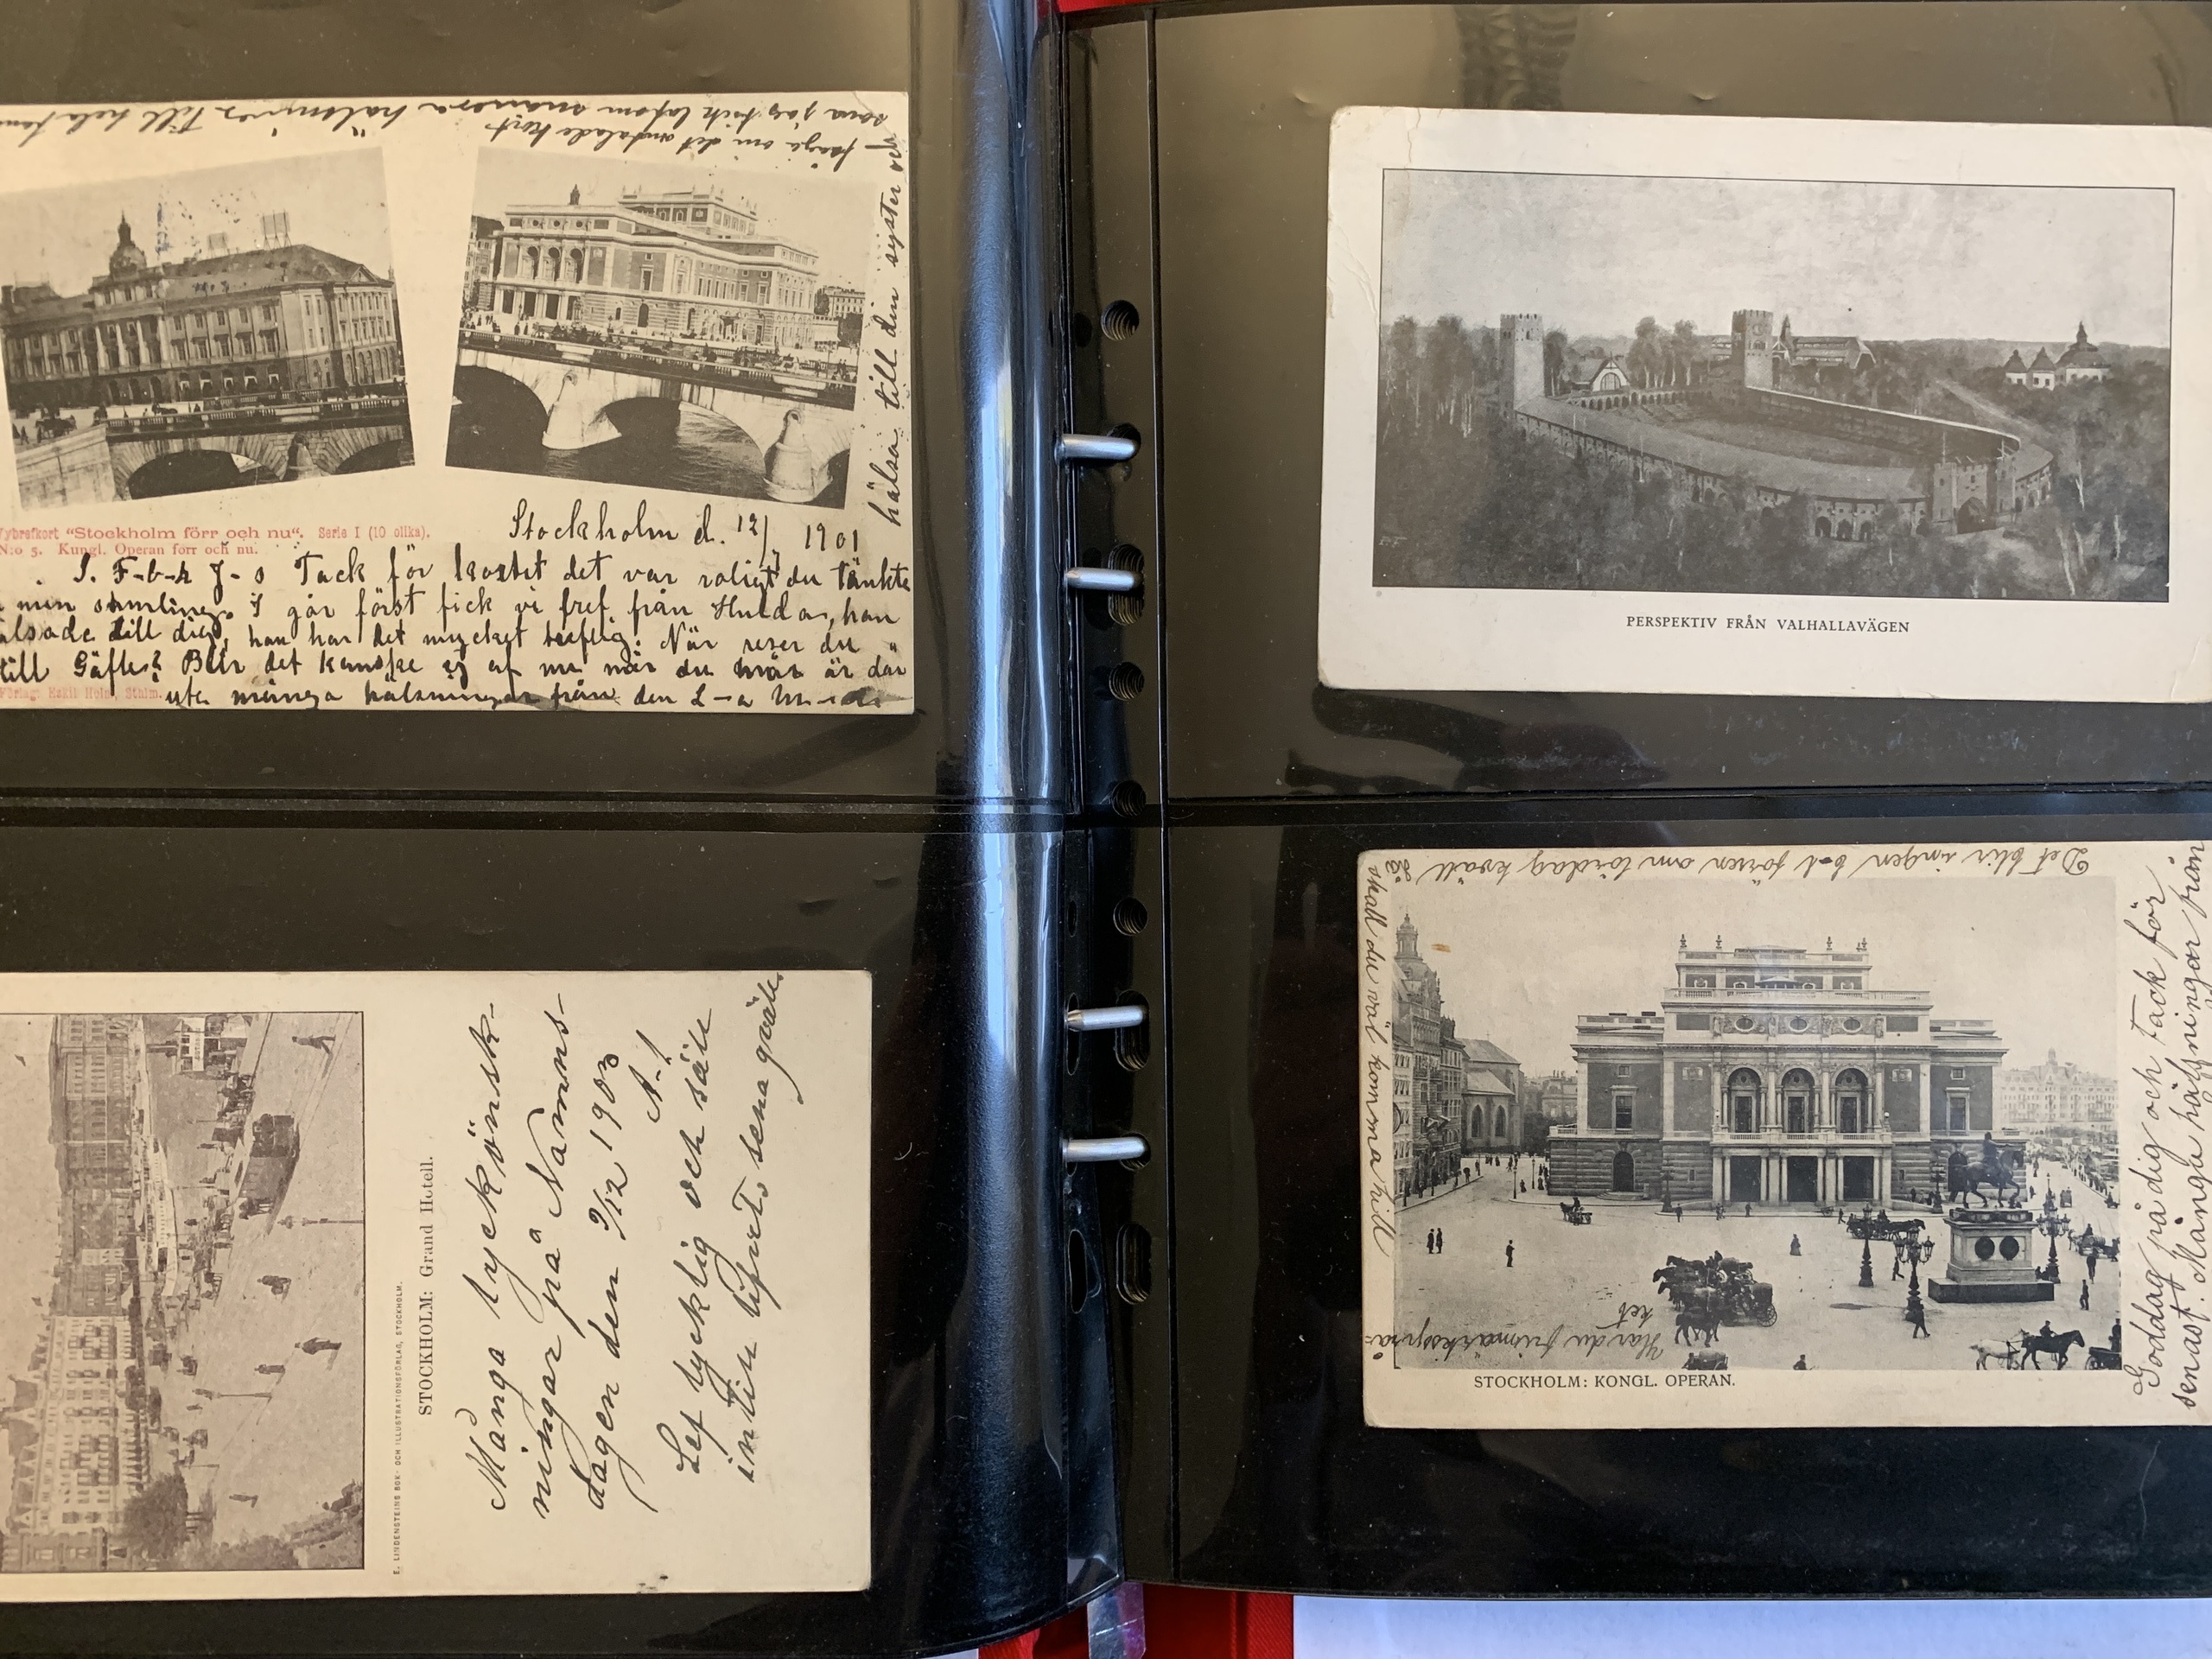 Vybrefkort "Stockholm förr och nu". Serie I (10 olika).
N:o 5. Kungl. Operan förr och nu.
Stockholm d. 12/ 1901
S. F-b-k J-s Tack för kortet det var roligt du tänkte
min samling. I går först fick vi bref från Hulda, han
till dig, han har det mycket
När reser du
till Gäfle? Blir det kanske ej af nu när du är där
många hälsningar från den L-a
Förlag: Eskil Holm, Sthlm.
hälsa till din syster och
fråga om det omtalade kort
som jag fick hälsningar till hela
PERSPEKTIV FRÅN VALHALLAVÄGEN
E. LINDENSTEINS BOK- OCH ILLUSTRATIONSFÖRLAG, STOCKHOLM.
STOCKHOLM: Grand Hotell.
Många lyckönsk-
ningar på Namns-
dagen den 9/12 1903
A-t
Lef lycklig och säll
intill lifvets sena qväll
Det blir ingen förren om lördag kväll
skall du väl komma till
Har du frimärksspråket
STOCKHOLM: KONGL. OPERAN.
Goddag på dig och tack för
senast. Många hälsningar från